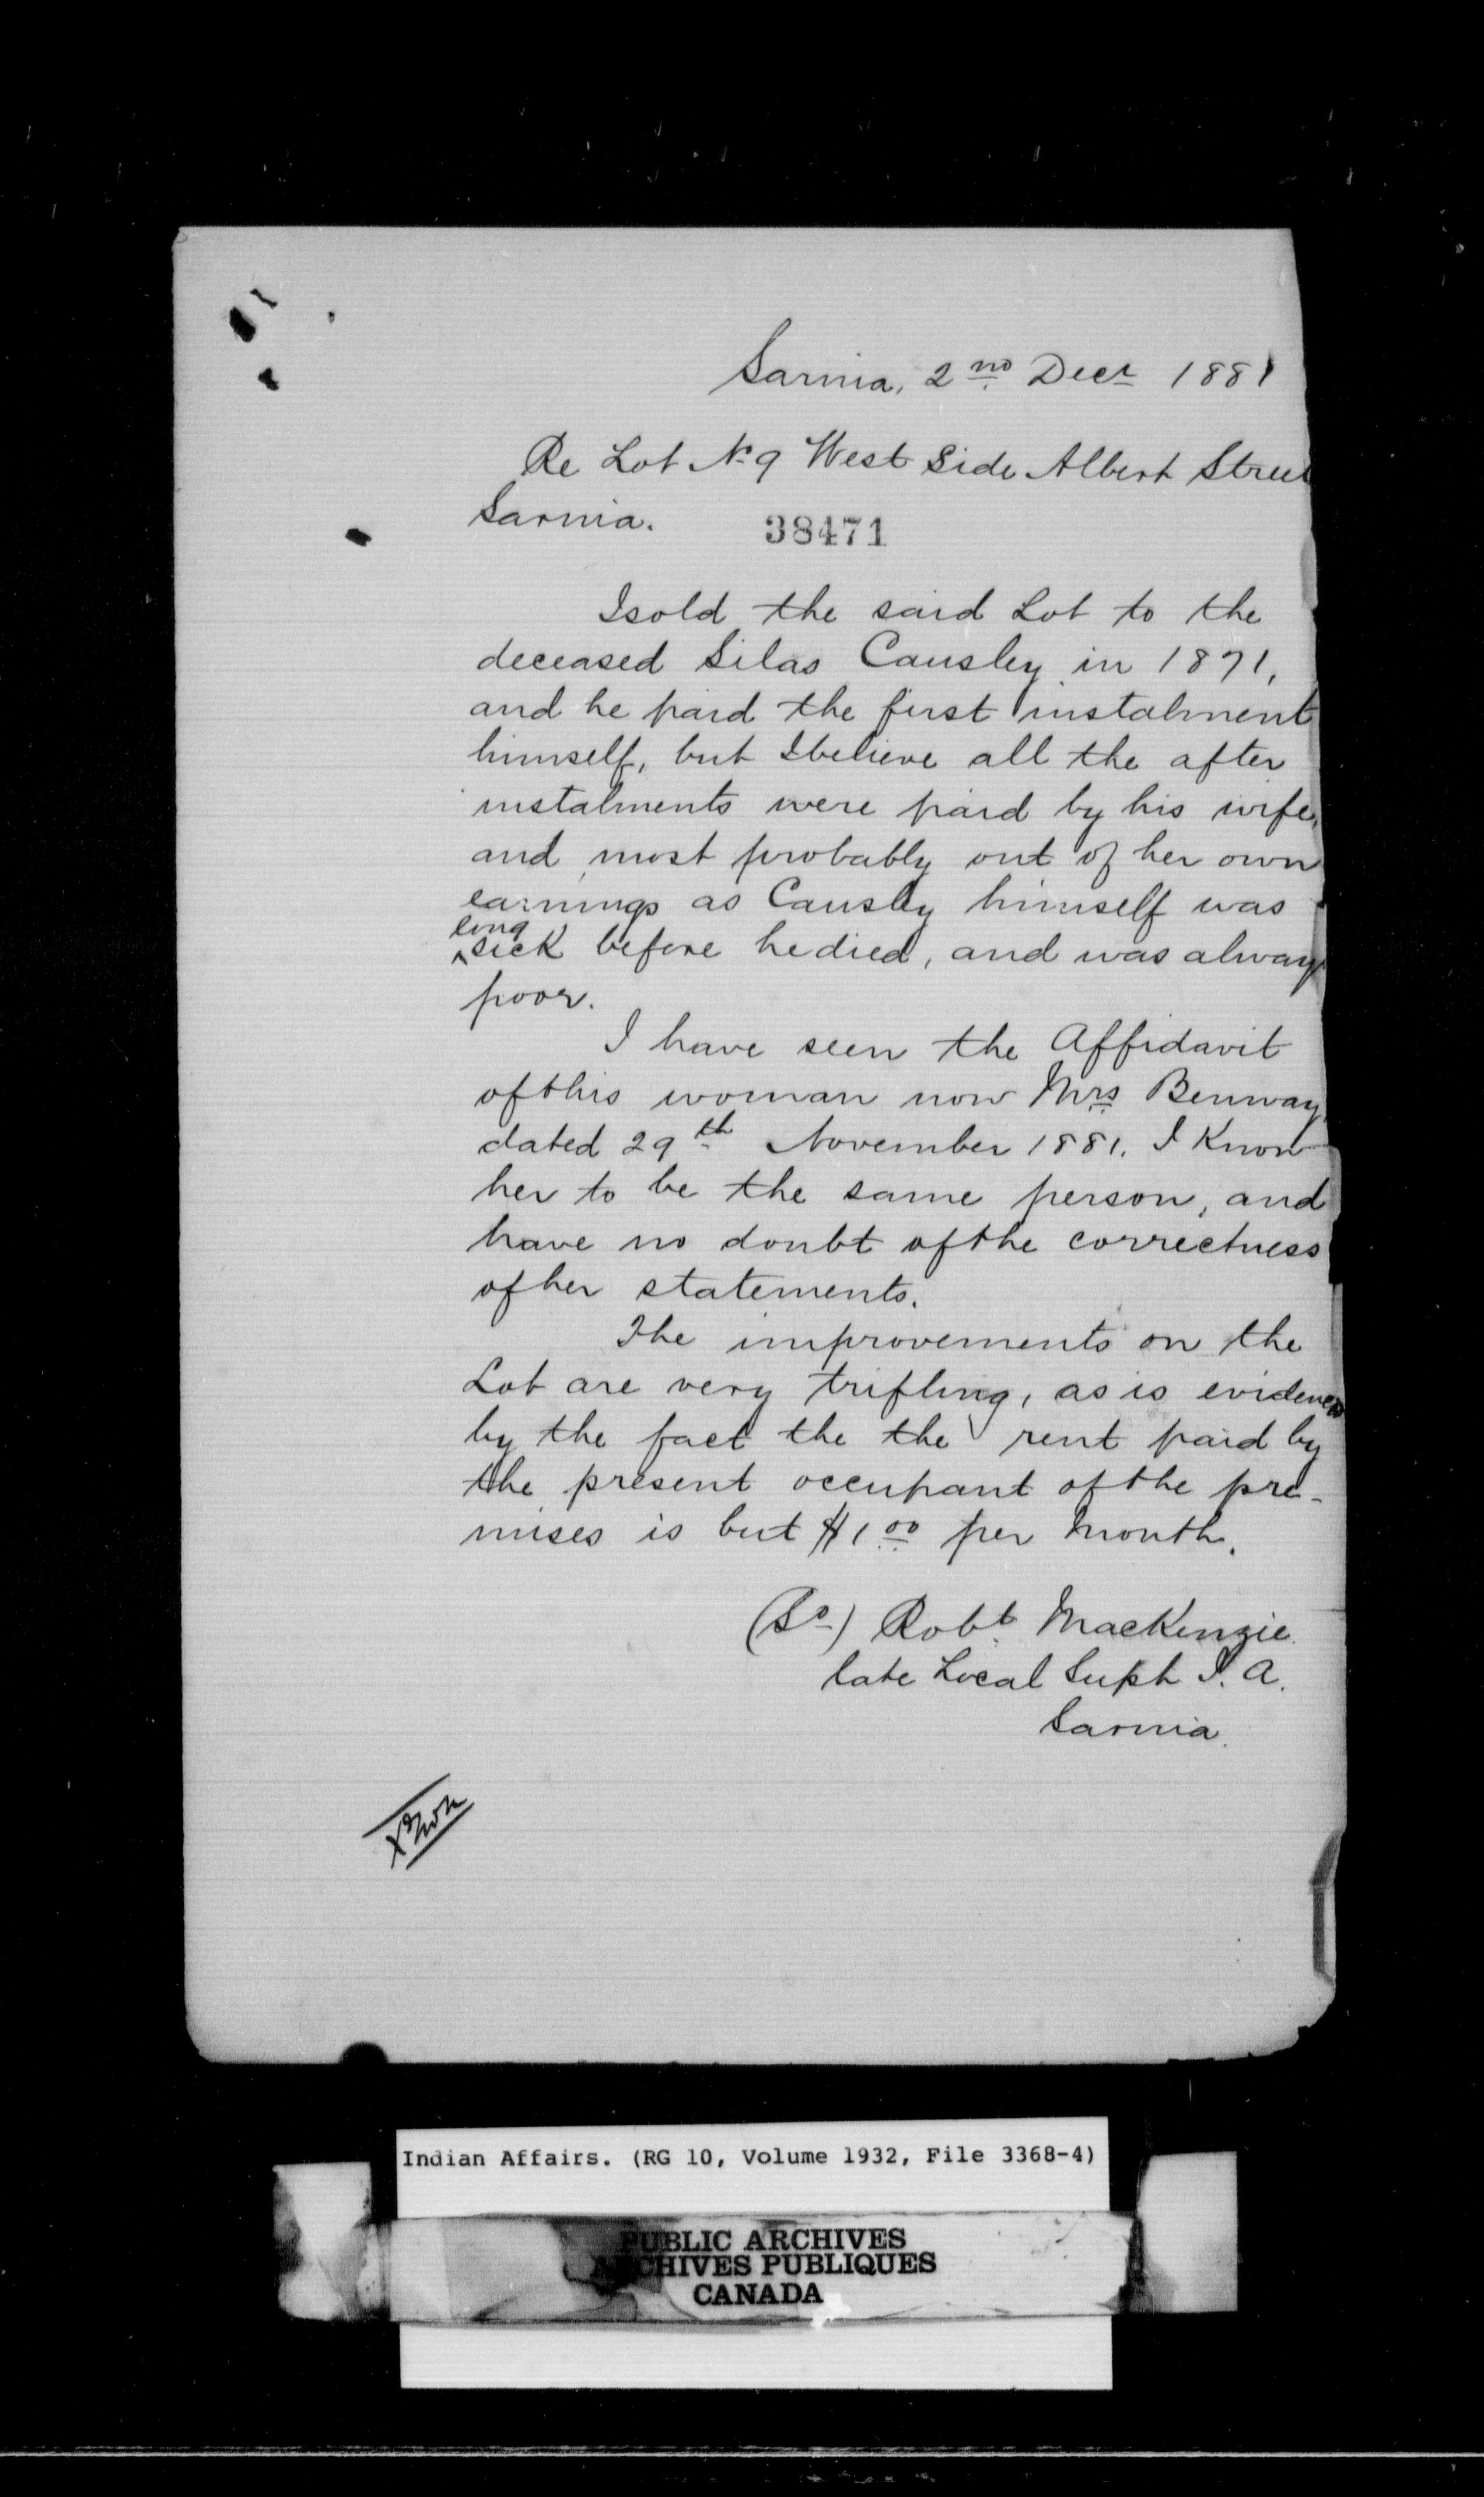 Sarnia, 2nd Decr 1881
Re Lot No 9 West Side Albert Street
Sarnia.
38471
I sold the said Lot to the
deceased Silas Causley in 1871,
and he paid the first instalment
himself, but I believe all the after
instalments were paid by his wife,
and most probably out of her own
earnings as Causley himself was
long
sick before he died, and was always
poor.
I have seen the Affidavit
of this woman now Mrs Benway,
dated 29th November 1881. I Know
her to be the same person, and
have no doubt of the correctness
of her statements.
The improvements on the
Lot are very trifling, as is evidenced
by the fact the the rent paid by
the present occupant of the pre-
mises is but $1.00 per month.
(Sd) Robt MacKenzie
late Local Supt I. A.
Sarnia.
Indian Affairs. (RG 10, Volume 1932, File 3368-4)
PUBLIC ARCHIVES
ARCHIVES PUBLIQUES
CANADA